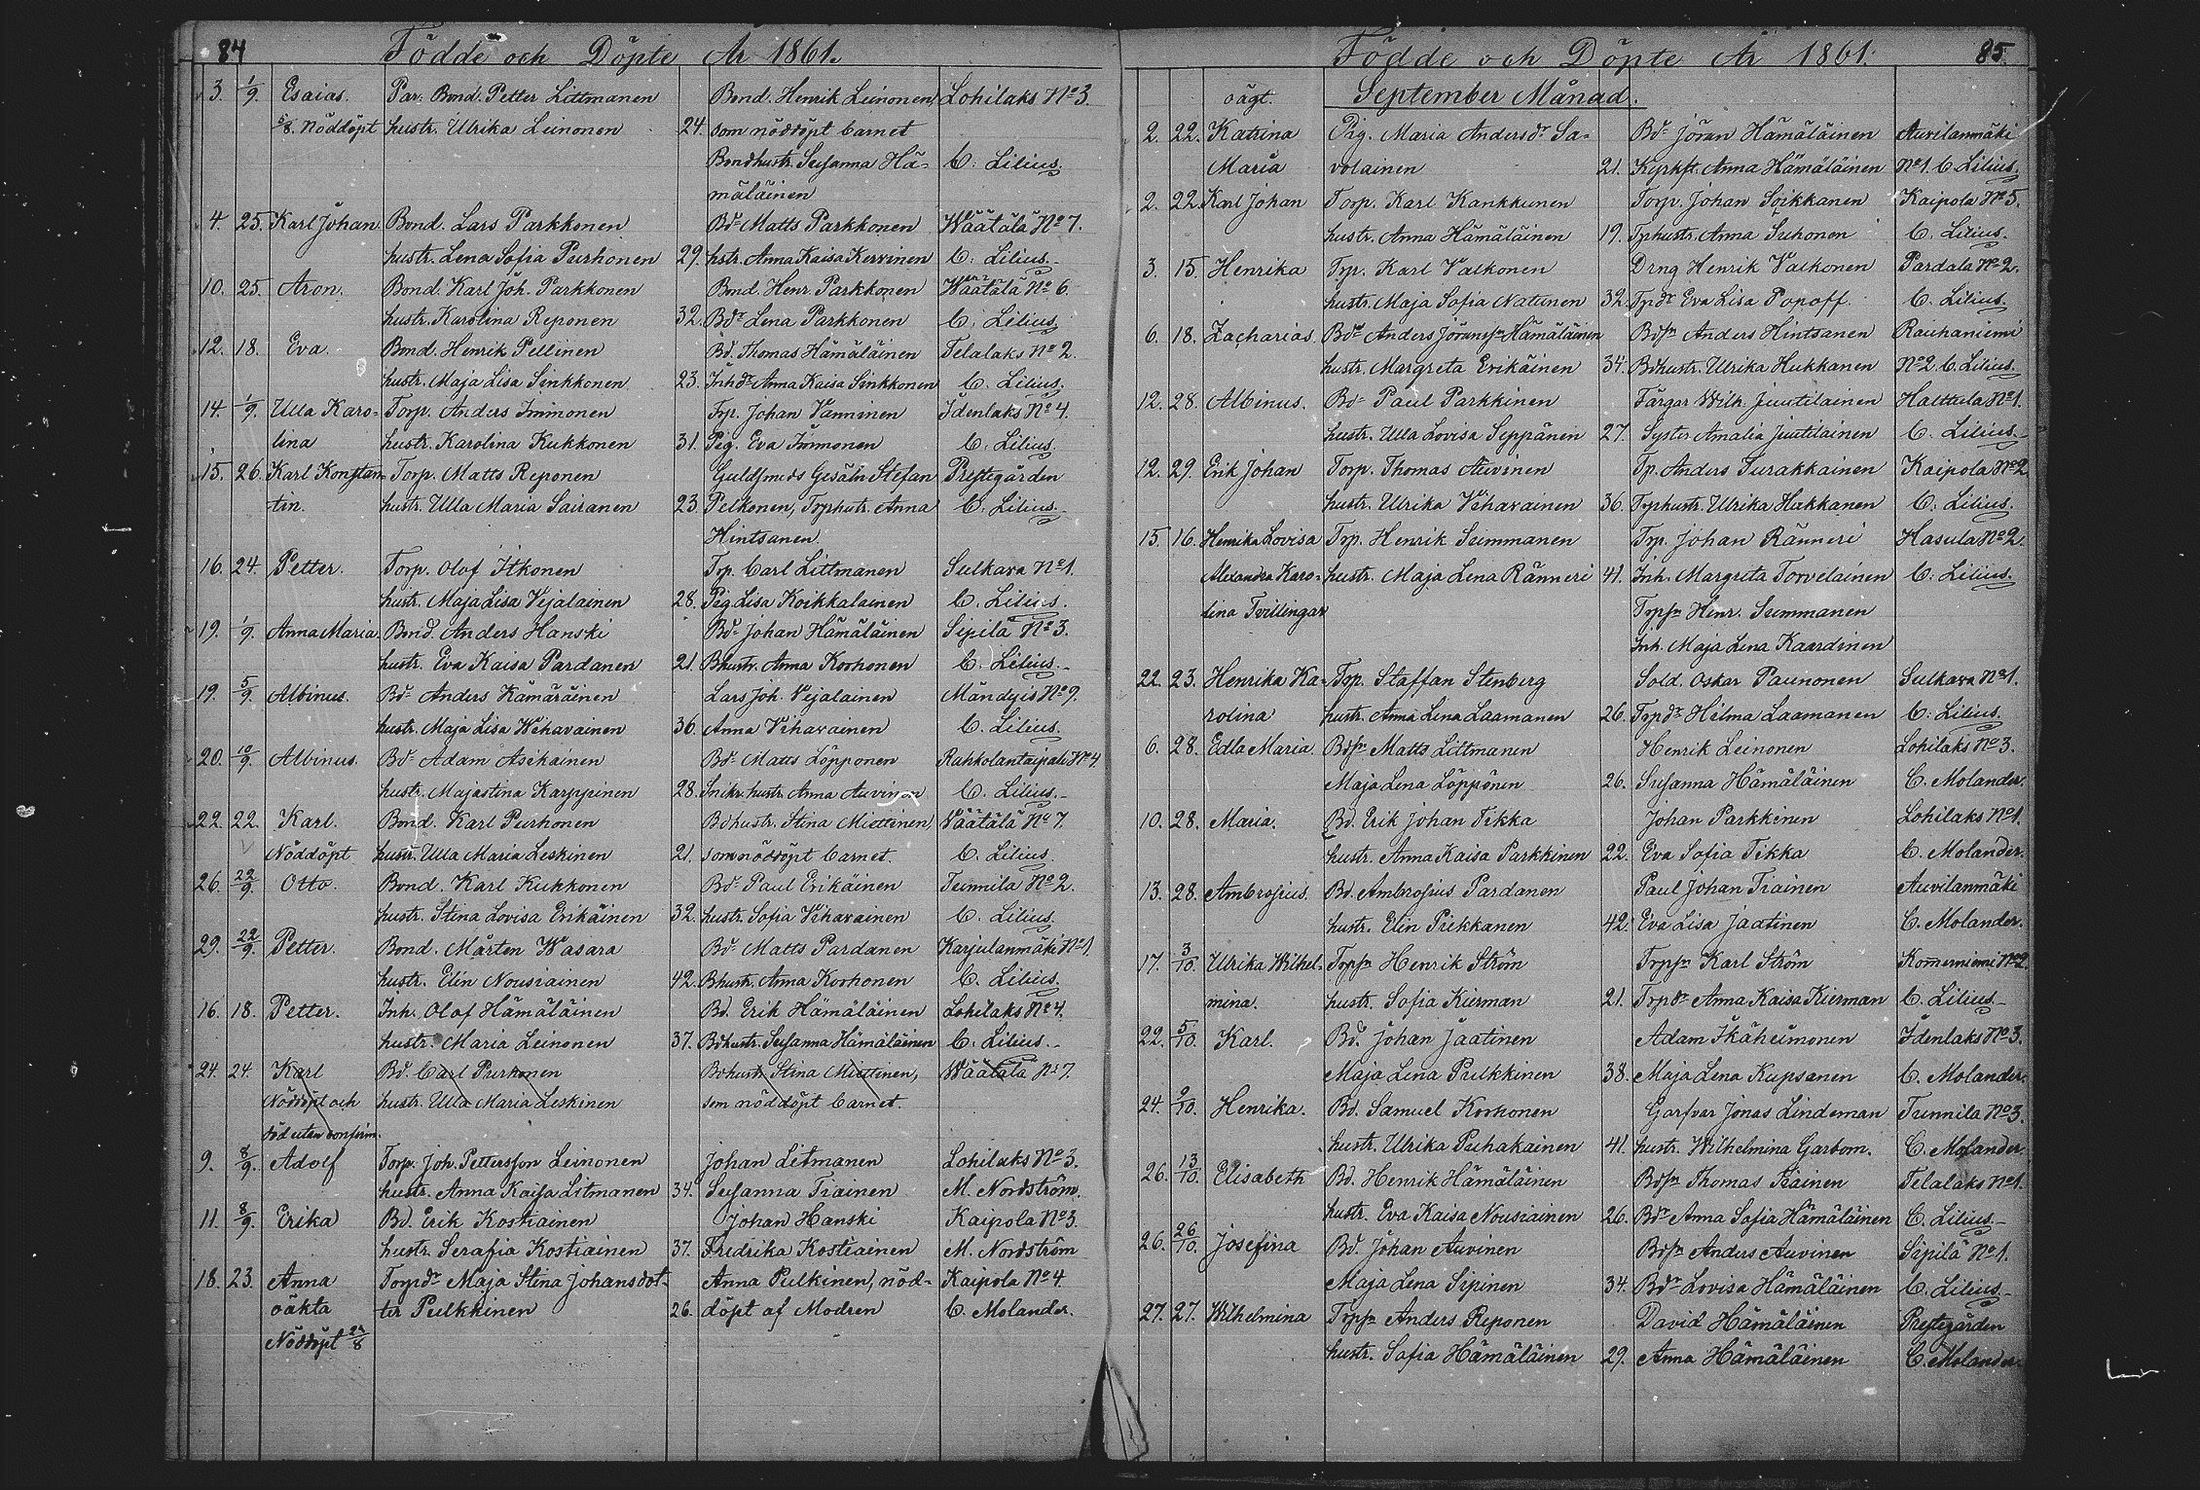 84 Födde och Döpte År 1861.
3. 1/9. Esaias. Par. Bond. Petter Littmanen Bond. Henrik Leinonen, Lohilaks No 3.
5/8. Nöddöpt hustr. Ulrika Leinonen 24. som nöddöpt barnet
Bondhustr. Susanna Hä- C. Lilius.
mäläinen
4. 25. Karl Johan. Bond. Lars Parkkonen Bdr Matts Parkkonen Wäätälä No 7.
hustr. Lena Sofia Purhonen 29. hstr. Anna Kaisa Kervinen C. Lilius.
10. 25. Aron. Bond. Karl Joh. Parkkonen Bond. Henr. Parkkonen Wäätälä No 6.
hustr. Karolina Reponen 32. Bdr Lena Parkkonen C. Lilius.
12. 18. Eva. Bond. Henrik Pellinen Bd. Thomas Hämäläinen Telalaks No 2.
hustr. Maja Lisa Sinkkonen 23. Inhdr Anna Kaisa Sinkkonen C. Lilius.
14. 1/9. Ulla Karo- Torp. Anders Immonen Trp. Johan Vanninen Idenlaks No 4.
lina hustr. Karolina Kukkonen 31. Pig. Eva Immonen C. Lilius.
15. 26. Karl Konstan- Torp. Matts Reponen Guldsmeds Gesäln Stefan Prestegården
tin. hustr. Ulla Maria Sairanen 23. Pelkonen, Trphstr. Anna C. Lilius.
Hintsanen.
16. 24. Petter. Torp. Olof Itkonen Trp. Carl Littmanen Sulkava No 1.
hustr. Maja Lisa Vejalainen 28. Pig Lisa Koikkalainen C. Lilius.
19. 1/9. Anna Maria. Bond. Anders Hanski Bdr Johan Hämäläinen Sipilä No 3.
hustr. Eva Kaisa Pardanen 21. Bhustr. Anna Korhonen C. Lilius.
19. 5/9. Albinus. Bdr Anders Kämäräinen Lars Joh. Vejalainen Mändyis No 9.
hustr. Maja Lisa Wihavainen 36. Anna Vihavainen C. Lilius.
20. 10/9. Albinus. Bdr Adam Asikainen Bdr Matts Löpponen Rahkolantaipale No 4.
hustr. Majastina Karppinen 28. Snikr. hustr. Anna Auvinen C. Lilius.
22. 22. Karl. Bond. Karl Purhonen Bdhustr. Stina Miettinen, Väätälä No 7.
Nöddöpt hustr. Ulla Maria Leskinen 21. som nöddöpt barnet. C. Lilius.
26. 22/9. Otto. Bond. Karl Kukkonen Bdr Paul Erikäinen Tunnila No 2.
hustr. Stina Lovisa Erikäinen 32. hustr. Sofia Vihavainen C. Lilius.
29. 22/9. Petter. Bond. Mårten Wasara Bdr Matts Pardanen Karjulanmäki No 1.
hustr. Elin Nousiainen 42. Bhustr. Anna Korhonen C. Lilius.
16. 18. Petter. Inh. Olof Hämäläinen Bd. Erik Hämäläinen Lohilaks No 4.
hustr. Maria Leinonen 37. Bdhustr. Susanna Hämäläinen C. Lilius.
24. 24. Karl Bd. Carl Purhonen Bdhustr. Stina Miettinen, Wäätälä No 7.
Nöddöpt och hustr. Ulla Maria Leskinen som nöddöpt barnet.
död utan confirm.
9. 8/9. Adolf Torp. Joh. Pettersson Leinonen Johan Litmanen Lohilaks No 3.
hustr. Anna Kaisa Litmanen 34. Susanna Tiainen M. Nordström.
11. 8/9. Erika Bd. Erik Kostiainen Johan Hanski Kaipola No 3.
hustr. Serafia Kostiainen 37. Fredrika Kostiainen M. Nordström
18. 23. Anna Torpdr Maja Stina Johansdot- Anna Pulkinen, nöd- Kaipola No 4.
oäkta ter Pulkkinen 26. döpt af Modren C. Molander.
Nöddöpt 24/8
Födde och Döpte År 1861. 85.
oägt. September Månad.
2. 22. Katrina Pig. Maria Andersdr Sa- Bdr Jöran Hämäläinen Auvilanmäki
Maria volainen 21. Kyrkft. Anna Hämäläinen No 1. C. Lilius.
2. 22. Karl Johan Torp. Karl Kankkunen Torp. Johan Soikkanen Kaipola No 5.
hustr. Anna Hämäläinen 19. Tphustr. Anna Suhonen C. Lilius.
3. 15. Henrika Trp. Karl Valkonen Drng Henrik Valkonen Pardala No 2.
hustr. Maja Sofia Natunen 32. Tpdr Eva Lisa Popoff. C. Lilius.
6. 18. Zacharias. Bdr Anders Joransn Hämäläinen Bdsn Anders Hintsanen Rauhaniemi
hustr. Margreta Erikäinen 34. Bdhustr. Ulrika Hukkanen No 2. C. Lilius.
12. 28. Albinus. Bdr Paul Parkkinen Färgar Wilh. Juutilainen Halttula No 1.
hustr. Ulla Lovisa Seppänen 27. Syster Amalia Juutilainen C. Lilius.
12. 29. Erik Johan Torp. Thomas Auvinen Tp. Anders Surakkainen Kaipola No 2
hustr. Ulrika Vihavainen 36. Trphustr. Ulrika Hukkanen C. Lilius.
15. 16. Henrika Lovisa Trp. Henrik Summanen Trp. Johan Ränneri Hasula No 2.
Alexandra Karo- hustr. Maja Lena Ränneri 41. Inh. Margreta Torvelainen C. Lilius.
lina Tvillingar Trpsn Henr. Summanen
Inh. Maja Lena Kaardinen
22. 23. Henrika Ka- Trp. Staffan Stenberg Sold. Oskar Paunonen Sulkava No 1.
rolina hustr. Anna Lena Laamanen 26. Trpdr Hilma Laamanen C. Lilius.
6. 28. Edla Maria. Bdsn Matts Littmanen Henrik Leinonen Lohilaks No 3.
Maja Lena Löppönen 26. Susanna Hämäläinen C. Molander.
10. 28. Maria. Bd. Erik Johan Tikka Johan Parkkinen Lohilaks No 1.
hustr. Anna Kaisa Parkkinen 22. Eva Sofia Tikka C. Molander.
13. 28. Ambrosius. Bd. Ambrosius Pardanen Paul Johan Tiainen Auvilanmäki
hustr. Elin Piekkanen 42. Eva Lisa Jaatinen C. Molander.
17. 3/10. Ulrika Wilhel- Trpsn Henrik Ström Trpsn Karl Ström Kommerniemi No 2
mina. hustr. Sofia Kierman 21. Trpdr Anna Kaisa Kierman C. Lilius.
22. 5/10. Karl. Bd. Johan Jaatinen Adam Ikäheimonen Idenlaks No 3.
Maja Lena Pulkkinen 38. Maja Lena Kupsanen C. Molander.
24. 9/10. Henrika. Bd. Samuel Korhonen Garfvar Jonas Lindeman Tunnila No 3.
hustr. Ulrika Puhakainen 41. hustr. Wilhelmina Garbom. C. Molander
26. 13/10. Elisabeth Bd. Henrik Hämäläinen Bdsn Thomas Tiainen Telalaks No 1.
hustr. Eva Kaisa Nousiainen 26. Bdr Anna Sofia Hämäläinen C. Lilius.
26. 26/10. Josefina Bd. Johan Auvinen Bdsn Anders Auvinen Sipilä No 1.
Maja Lena Sipinen 34. Bdr Lovisa Hämäläinen C. Lilius.
27. 27. Wilhelmina Trpsn Anders Reponen David Hämäläinen Prestegården
hustr. Sofia Hämäläinen 29. Anna Hämäläinen C. Molander.